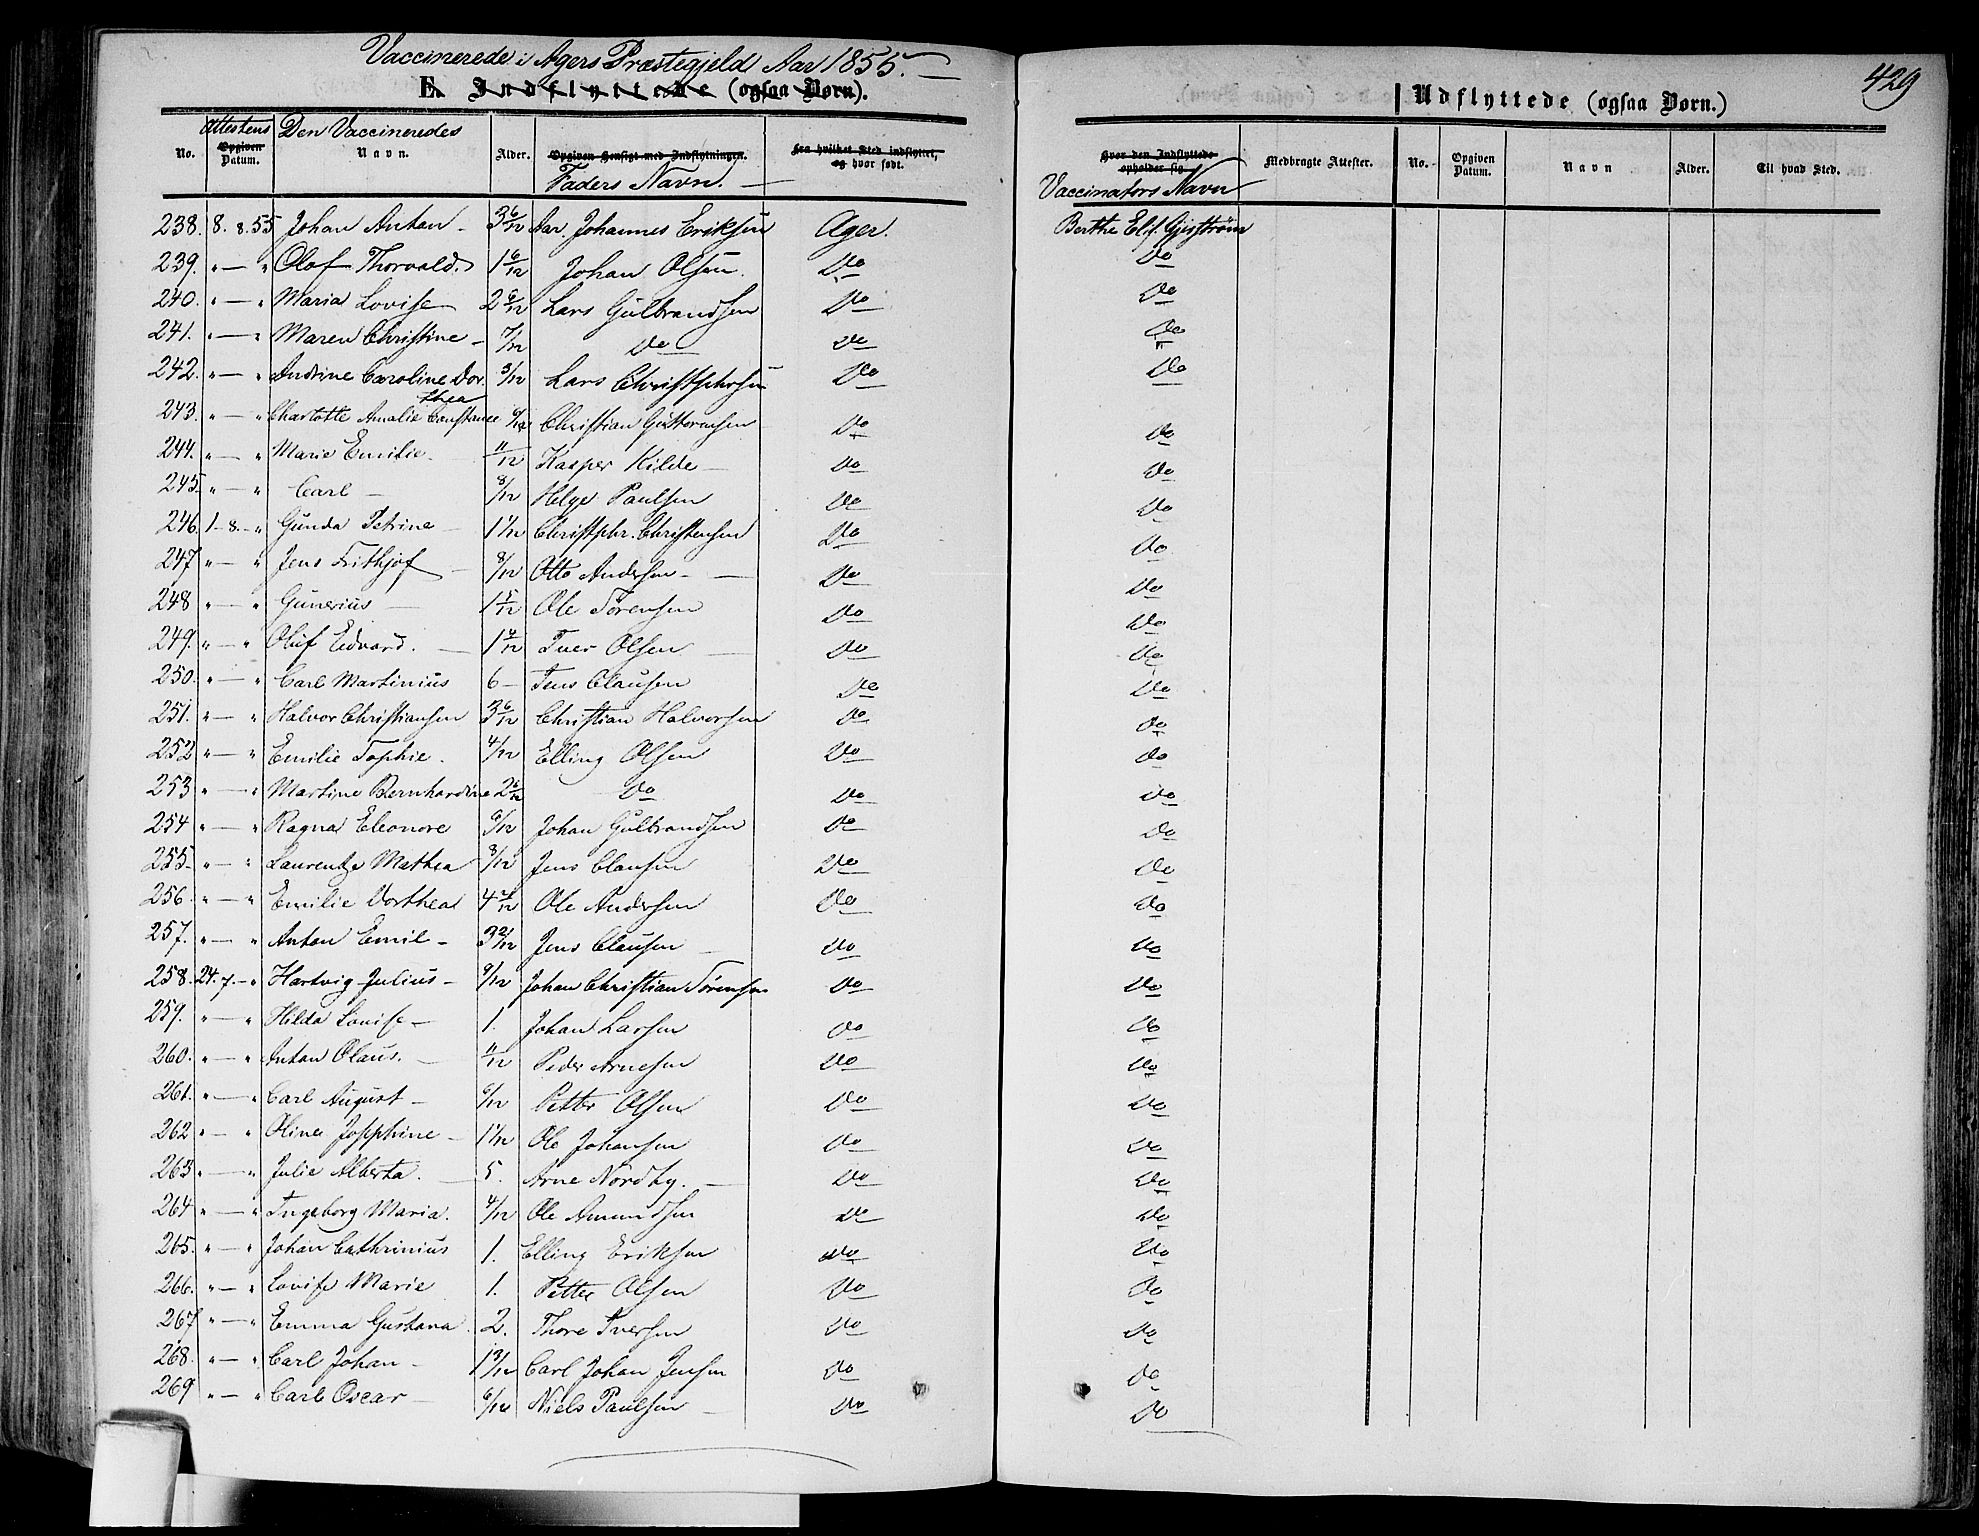 Vaccinerede i Agers Præstegjeld Aar 1855.
E. Indflyttede (ogsaa Børn).
Udflyttede (ogsaa Børn.)
429
No. Attestens Opgiven Datum. Den Vaccineredes Navn. Alder. Opgiven Hensigt med Indflytningen. Faders Navn. Fra hvilket Sted indflyttet, og hvor født. Hvor den Indflyttede opholder sig. Vaccinators Navn Medbragte Attester. No. Opgiven Datum. Navn Alder. Til hvad Sted.
238. 8. 8. 55 Johan Anton - 3 6/12 Aar. Johannes Eriksen Ager. Berthe Elis. Gjiström
239. " — " Olaf Thorvald. 1 6/12 Johan Olsen. Do Do
240. " — " Maria Lovise 2 6/12 Lars Gulbrandsen Do Do
241. " — " Maren Christine - 7/12 Do Do Do
242. " — " Andrine Caroline Dorthea 3/12 Lars Christophersen Do Do
243. " — " Charlotte Amalie Constance 6/12 Christian Guttormsen Do Do
244. " — " Marie Emilie. 11/12 Kasper Kilde Do Do
245. " — " Carl - 8/12 Helge Paulsen Do Do
246. 1 - 8. - " Gunda Petrine 1 1/12 Christphr. Christensen Do Do
247 " — " Jens Frithjof 8/12 Otto Andersen - Do Do
248 " — " Gunerius 1 5/12 Ole Sørensen Do Do
249. " — " Oluf Edvard. 1 9/12 Iver Olsen Do Do
250. " — " Carl Martinius 6 - Jens Clausen Do Do
251. " — " Halvor Christiansen 3 6/12 Christian Halvorsen Do Do
252 " — " Emilie Sophie. 4/12 Elling Olsen Do Do
253 " — " Martine Bernhardine 2 6/12 Do Do Do
254 " — " Ragna Eleonore 6/12 Johan Gulbrandsen Do Do
255. " — " Laurentze Mathea 3/12 Jens Clausen Do Do
256 " — " Emilie Dorthea 4 2/12 Ole Andersen Do Do
257. " — " Anton Emil - 3 2/12 Jens Clausen Do Do
258. 24. 7. - " Hartvig Julius - 9/12 Johan Christian Sørensen Do Do
259. " — " Hilda Lovise - 1. Johan Larsen Do Do
260. " — " Anton Olaus. 11/12 Peder Arnesen Do Do
261. " — " Carl August - 6/12 Petter Olsen Do Do
262 " — " Oline Josephine - 1 1/12 Ole Johansen Do Do
263 " — " Julie Alberta. 5. Arne Nordby. Do Do
264 " — " Ingeborg Maria. 4/12 Ole Amundsen Do Do
265. " — " Johan Cathrinius 1. Elling Eriksen Do Do
266. " — " Lovise Marie 1. Petter Olsen Do Do
267 " — " Emma Gustava. 2. Thore Iversen Do Do
268. " — " Carl Johan - 1 3/12 Carl Johan Jensen Do Do
269 " — " Carl Oscar - 6/12 Niels Paulsen Do Do